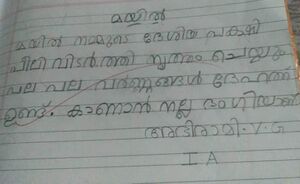 മയിൽ
മയിൽ നമ്മുടെ ദേശിയ പക്ഷി
പീലി വിടർത്തി നൃത്തം ചെയ്യും
പല പല വർണ്ണങ്ങൾ ദേഹത്ത്
ഉണ്ട്. കാണാൻ നല്ല ഭംഗിയാണ്
അഭിരാമി. V. G
I A